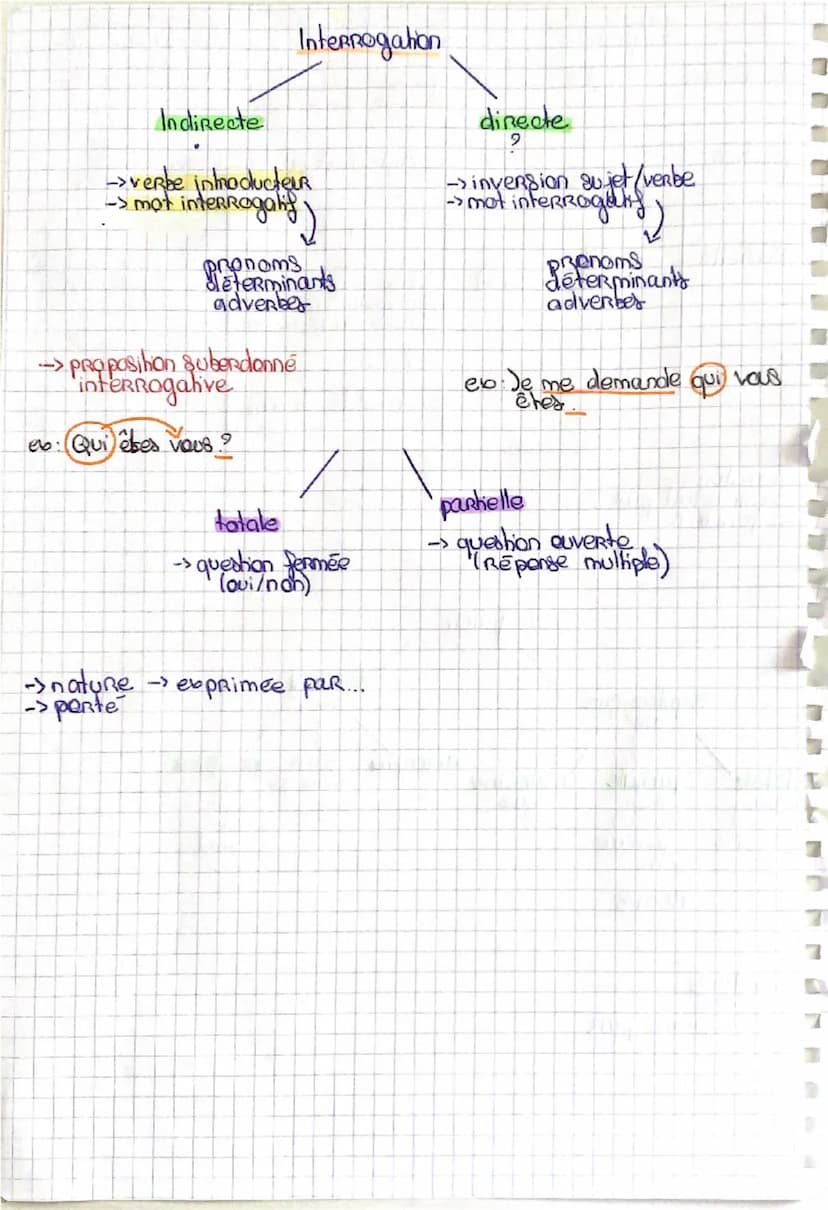 Interrogation
Indirecte
.
-> verbe introducteur
-> mot interrogatif
pronoms
déterminants
adverbes
-> proposition suberdonné
interrogative
ex : Qui êtes vous ?
directe
?
-> inversion sujet/verbe
-> mot interrogatif
pronoms
déterminants
adverbes
ex : Je me demande qui vous
êtes.
totale
-> question fermée
(oui/non)
partielle
-> question ouverte
(réponse multiple)
-> nature -> exprimée par...
-> porté